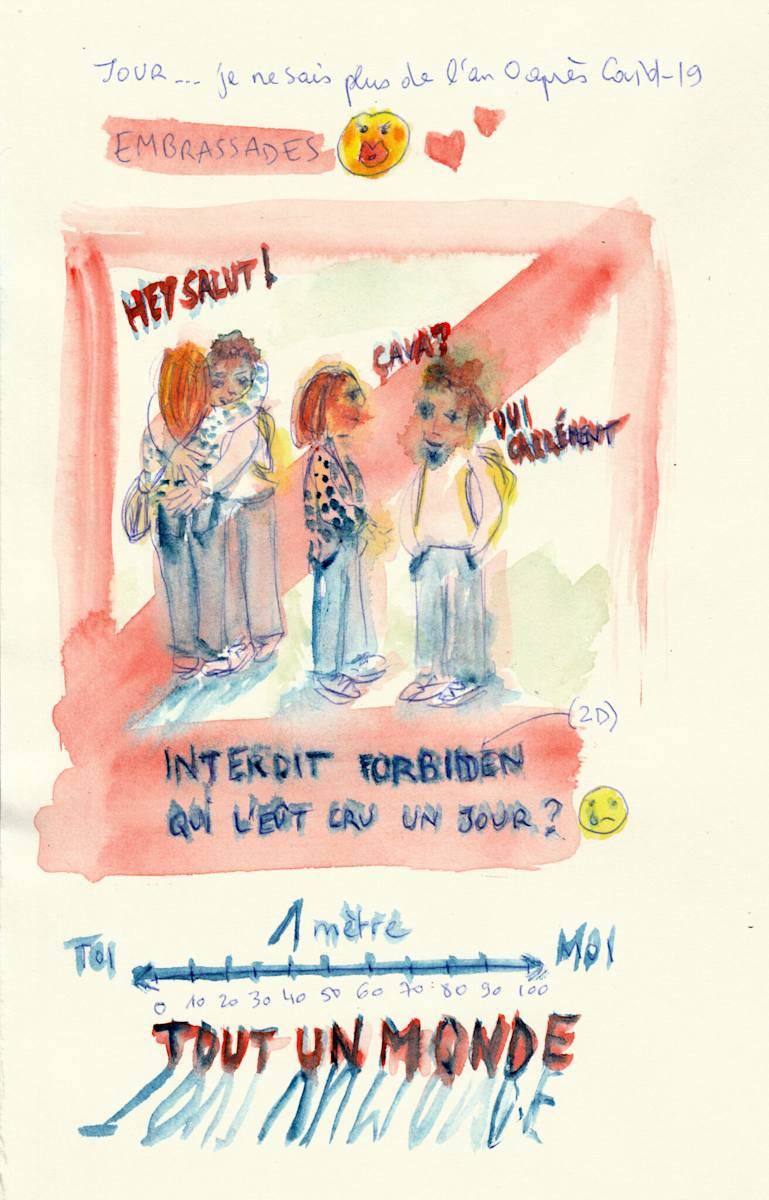 JOUR... je ne sais plus de l'an 0 après Covid-19
EMBRASSADES
HEY SALUT!
ÇA VA?
OUI
CARRÉMENT
(2D)
INTERDIT FORBIDEN
QUI L'EÛT CRU UN JOUR?
1 mètre
TOI
MOI
0 10 20 30 40 50 60 70 80 90 100
TOUT UN MONDE